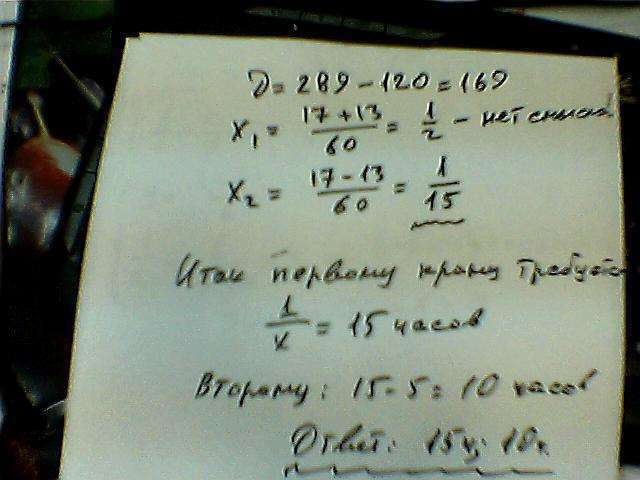 D = 289 - 120 = 169
x₁ = (17 + 13)/60 = 1/2 - нет смысла
x₂ = (17 - 13)/60 = 1/15
Итак первому крану требуется
1/x = 15 часов
Второму: 15 - 5 = 10 часов
Ответ: 15ч; 10ч.